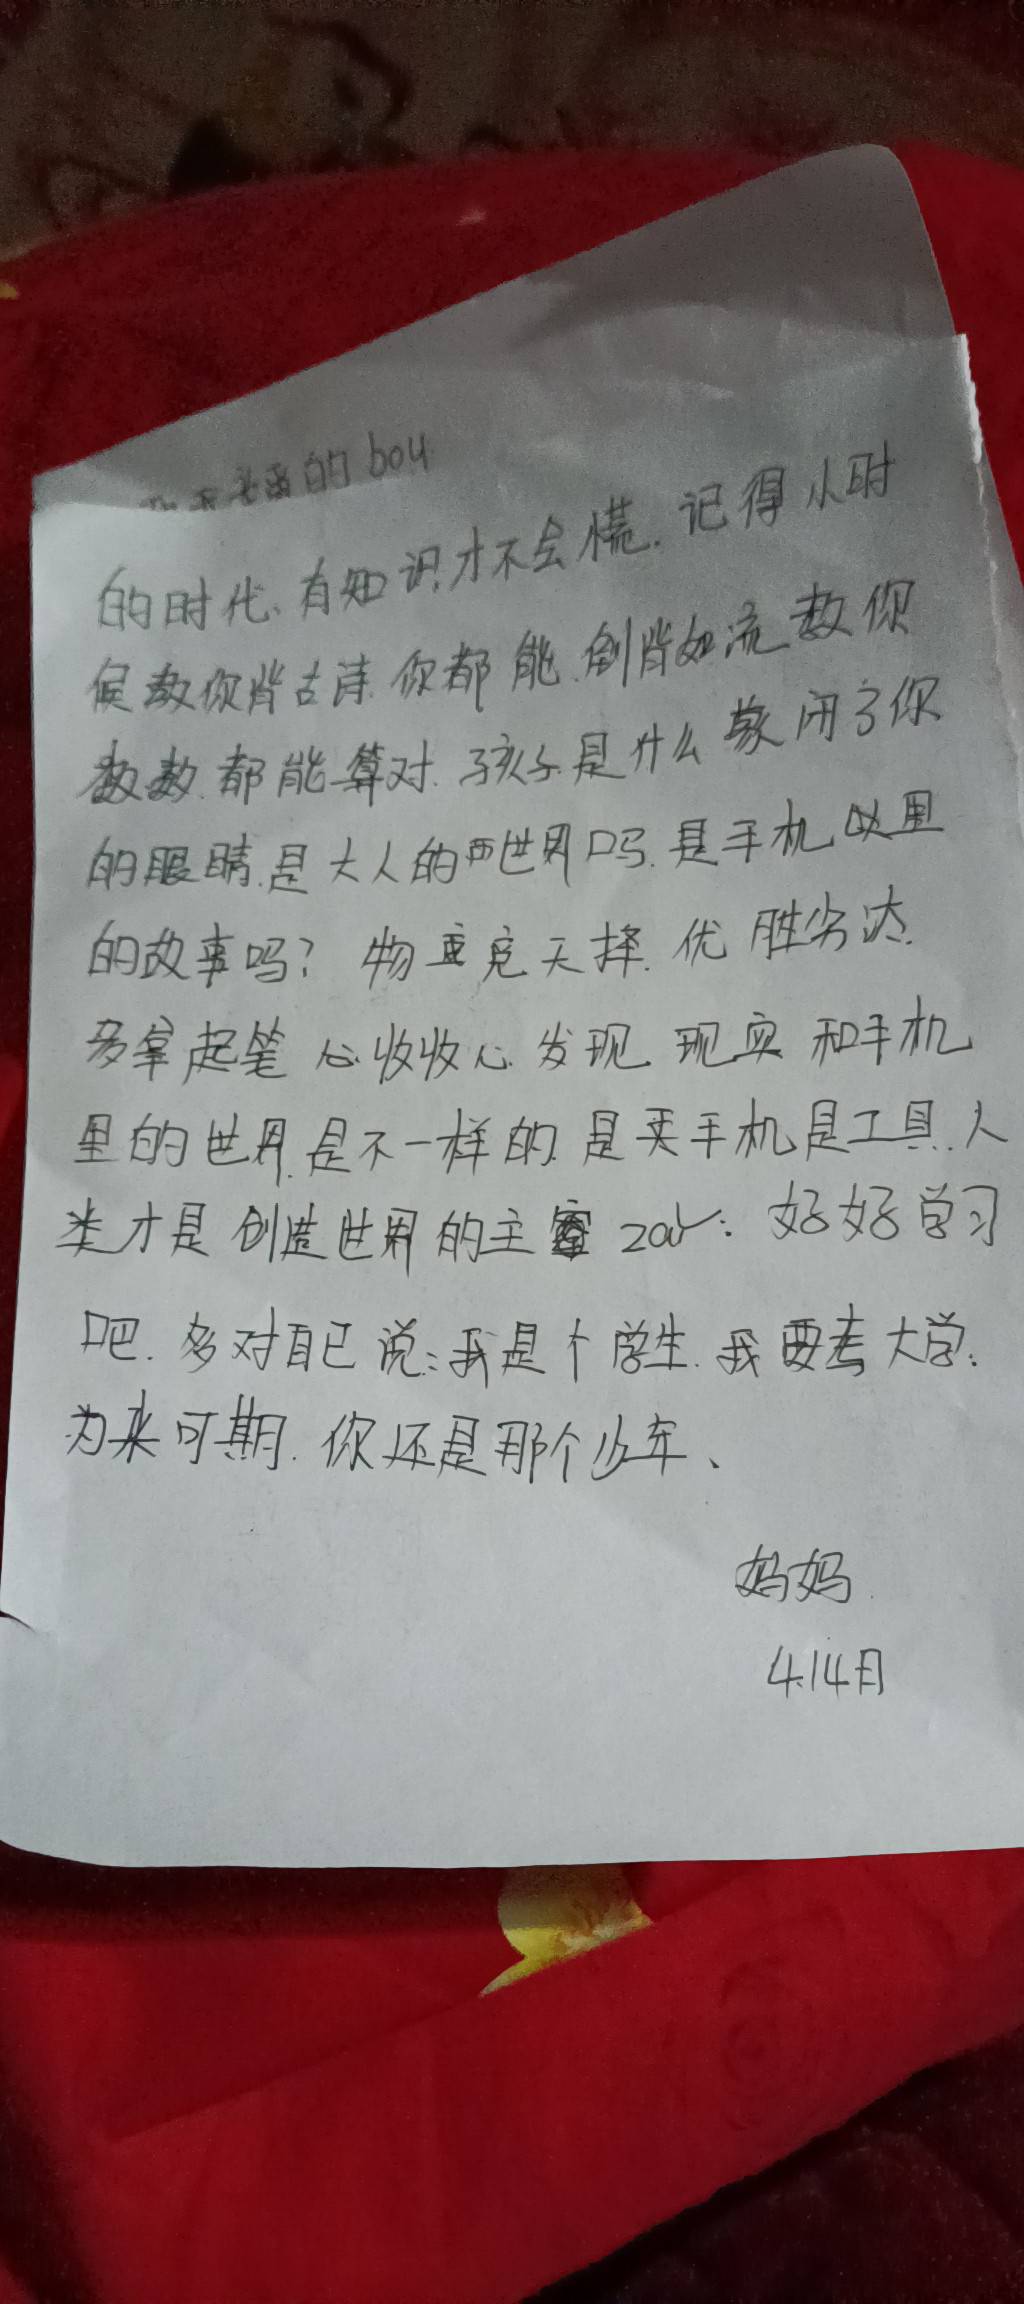 的 boy
的时代、有知识才不会慌.记得小时
候教你背古诗.你都能.倒背如流教你
数数.都能算对.孩子.是什么蒙闭了你
的眼睛.是大人的世界吗.是手机里
的故事吗？物竞天择.优胜劣汰.
多拿起笔 心收收心.发现 现实和手机
里的世界.是不一样的.是买手机是工具.人
类才是创造世界的主宰 zai：好好学习
吧.多对自己说：我是个学生.我要考大学.
为来可期.你还是那个少年、
妈妈
4.14日